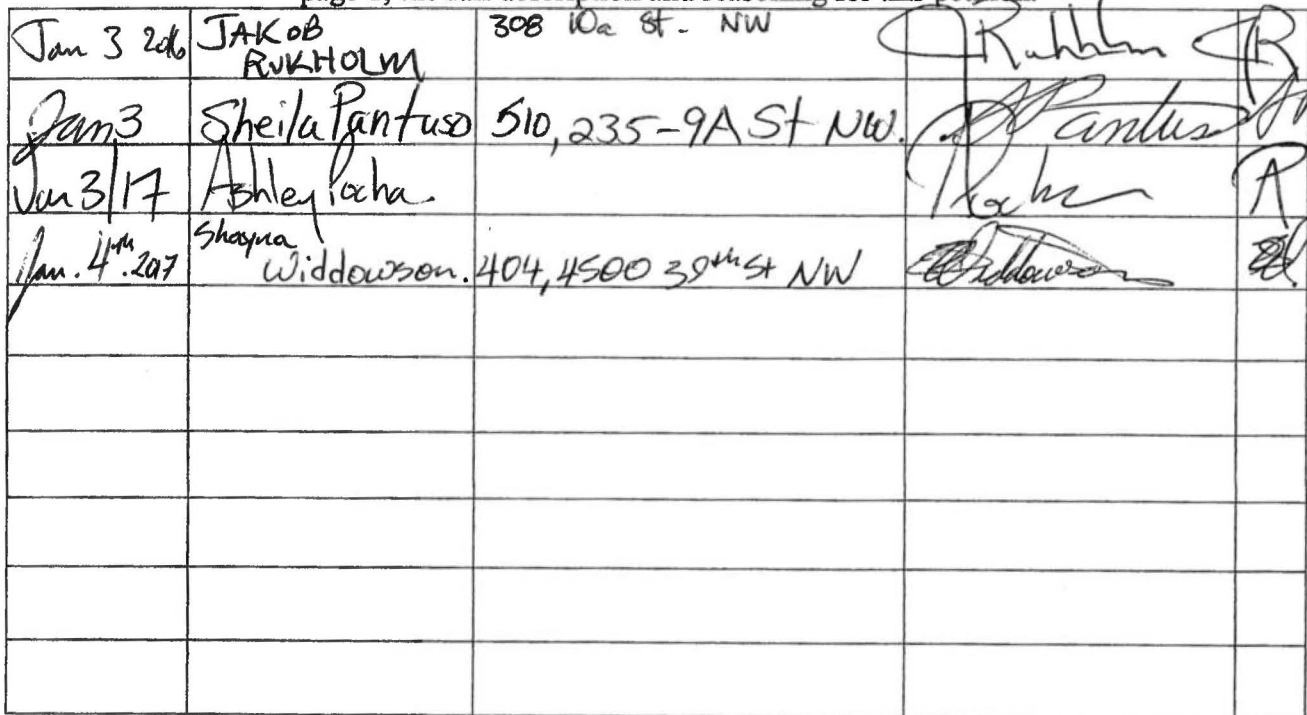 Jan 3 2016 JAKOB RUKHOLM 308 10a St - NW
Jan 3 Sheila Pantuso 510, 235-9A St NW.
Jan 3/17 Ashley Pocha. A
Jan. 4th. 2017 Shayna Widdowson. 404, 4500 39th St NW Widdowson